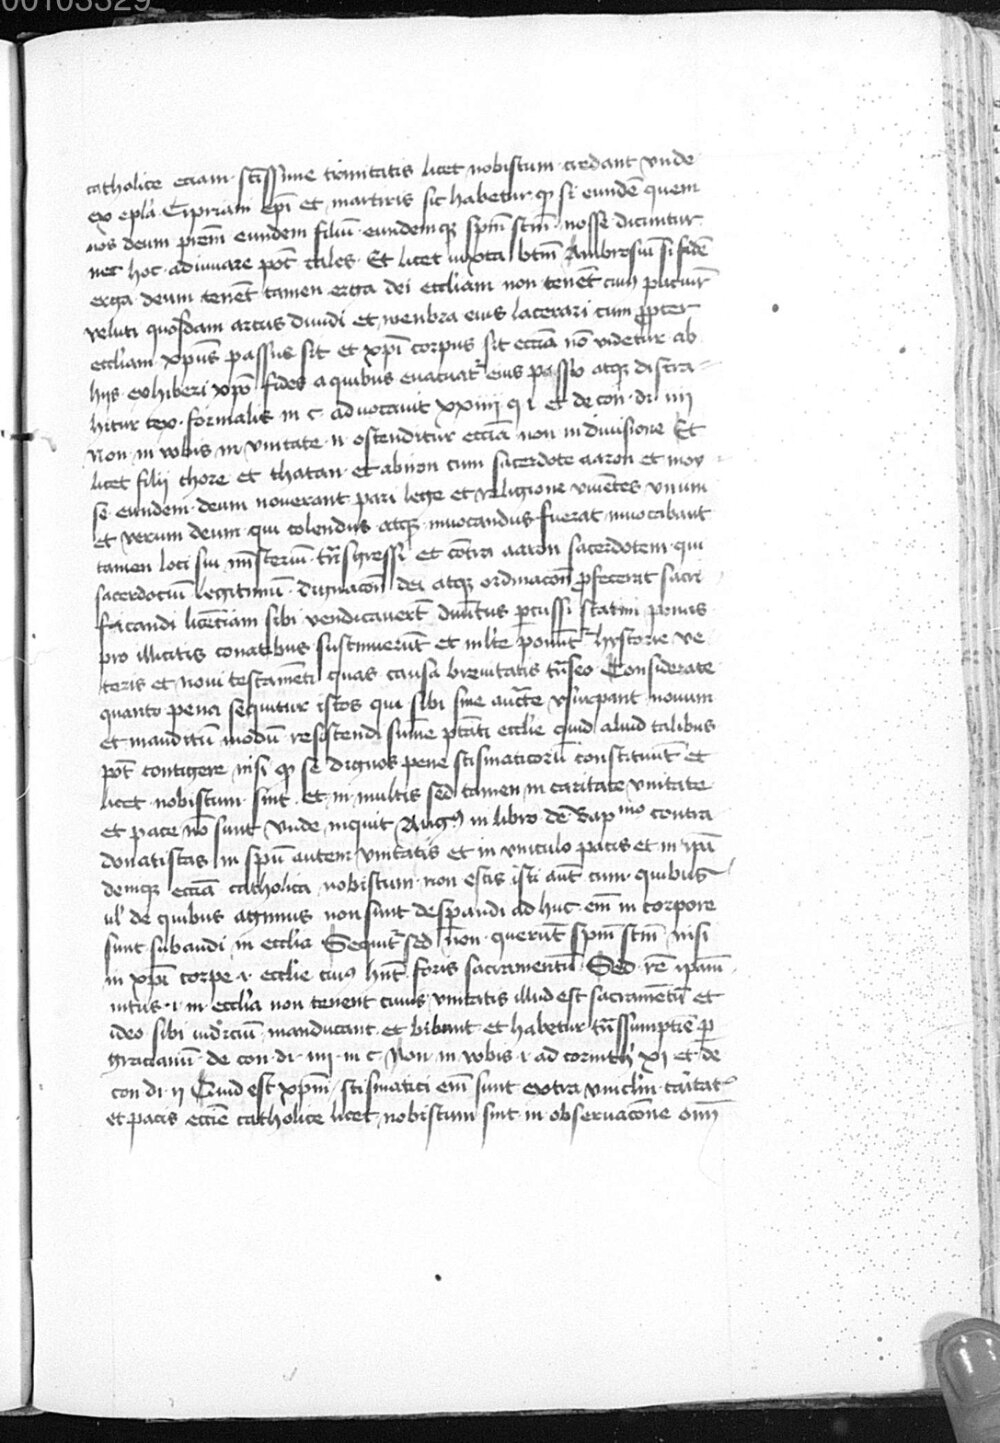 00103329
catholice eciam scissime trinitatis licet nobiscum credant vnde
ex epla Cipriani epi et martiris sic habetur q si eundē quem
nos deum prem eundem filiū eundemq spm scm nosse dicuntur
nec hoc adiuuare pot tales Et licet iuxta btm Ambrosiū si fidē
erga deum tenēt tamen erga dei eccliam non tenēt cuius patiunt
veluti quosdam artus diuidi et menbra eius lacerari cum ppter
eccliam xpus passus sit et xpi corpus sit eccia nō videtur ab
hijs exhiberi xpo fides a quibus euacuat eius passio atq distra-
hitur tex formalis in c aduocauit xxiiii q i et de con di iiii
Non in vobis in vnitate n ostenditur eccia non in diuisione Et
licet filij chore et thatan et abiron cum sacerdote aaron et moy-
se eundem deum nouerant pari lege et religione viuētes vnum
et verum deum qui colendus atq inuocandus fuerat inuocabant
tamen loci sui misterium trnsgressi et contra aaron sacerdotem qui
sacerdocium legitimū dignacōn dei atq ordinacōn pfecerat sacri-
ficandi licētiam sibi vendicauert diuitus pcussi statim penas
pro illicitis conatibus sustinuerūt et mlte ponunt hystorie ve
teris et noui testamēti quas causa breuitatis trnseo Considerate
quanto pena sequitur istos qui sibi sine aucte vsurpant nouum
et inauditū modū resistendi sume ptati ecclie quid aliud talibus
pot contigere nisi q se dignos pene scismaticorū constituūt et
licet nobiscum sint et in multis sed tamen in caritate vnitate
et pace nō sunt vnde inquit Aug9 in libro de bapmo contra
donatistas in spū autem vnitatis et in vniculo pacis et in ipa
deniq eccia catholica nobiscum non estis isti aut cum quibus
ul de quibus agimus non sunt despandi ad huc em in corpore
sunt subaudi in ecclia Sequit sed non querūt spm scm nisi
in xpi corpe i ecclie cuius hnt foris sacramentū Sed rē ipam
intus i in ecclia non tenent cuius vnitatis illud est sacramētū et
ideo sibi iudiciū manducant et bibunt et habetur trnssumptiē p
gracianū de con di iiii in c Non in vobis i ad corinth xi et de
con di ii Quid est xpm scismatici em sunt extra vniclm caritat
et pacis eccie catholice licet nobiscum sint in obseruacōne omi